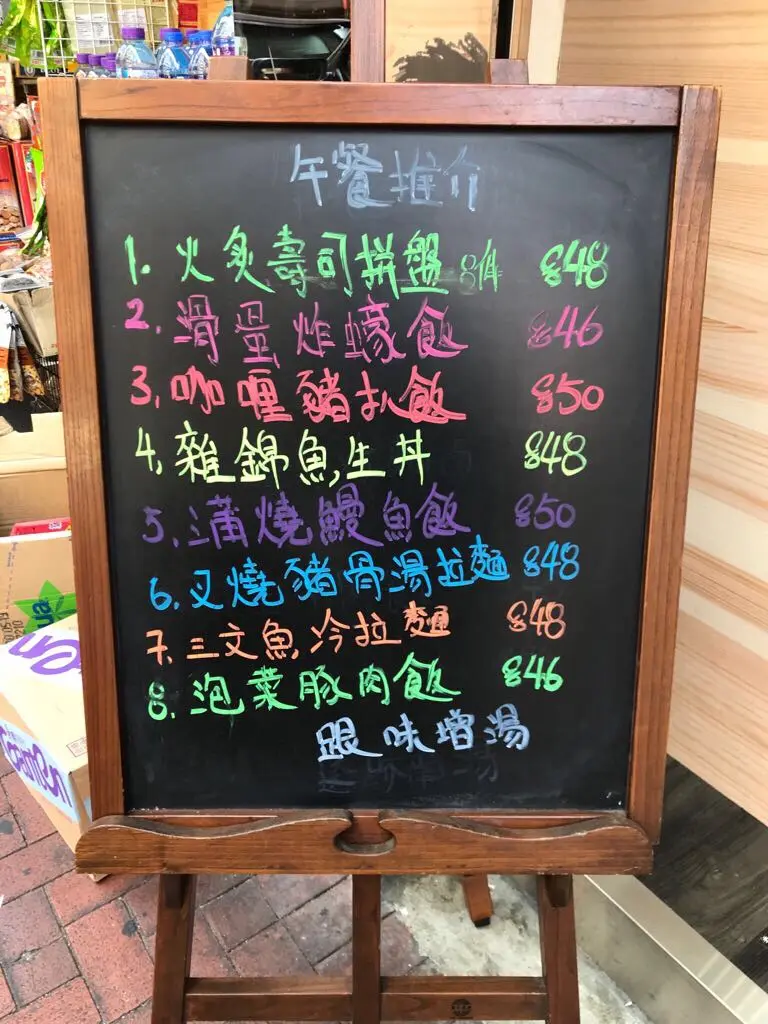 午餐推介
1. 火炙壽司拼盤 8件 $48
2. 滑蛋炸蠔飯 $46
3. 咖喱豬扒飯 $50
4. 雜錦魚生丼 $48
5. 蒲燒鰻魚飯 $50
6. 叉燒豬骨湯拉麵 $48
7. 三文魚冷拉麵 $48
8. 泡菜豚肉飯 $46
跟味增湯